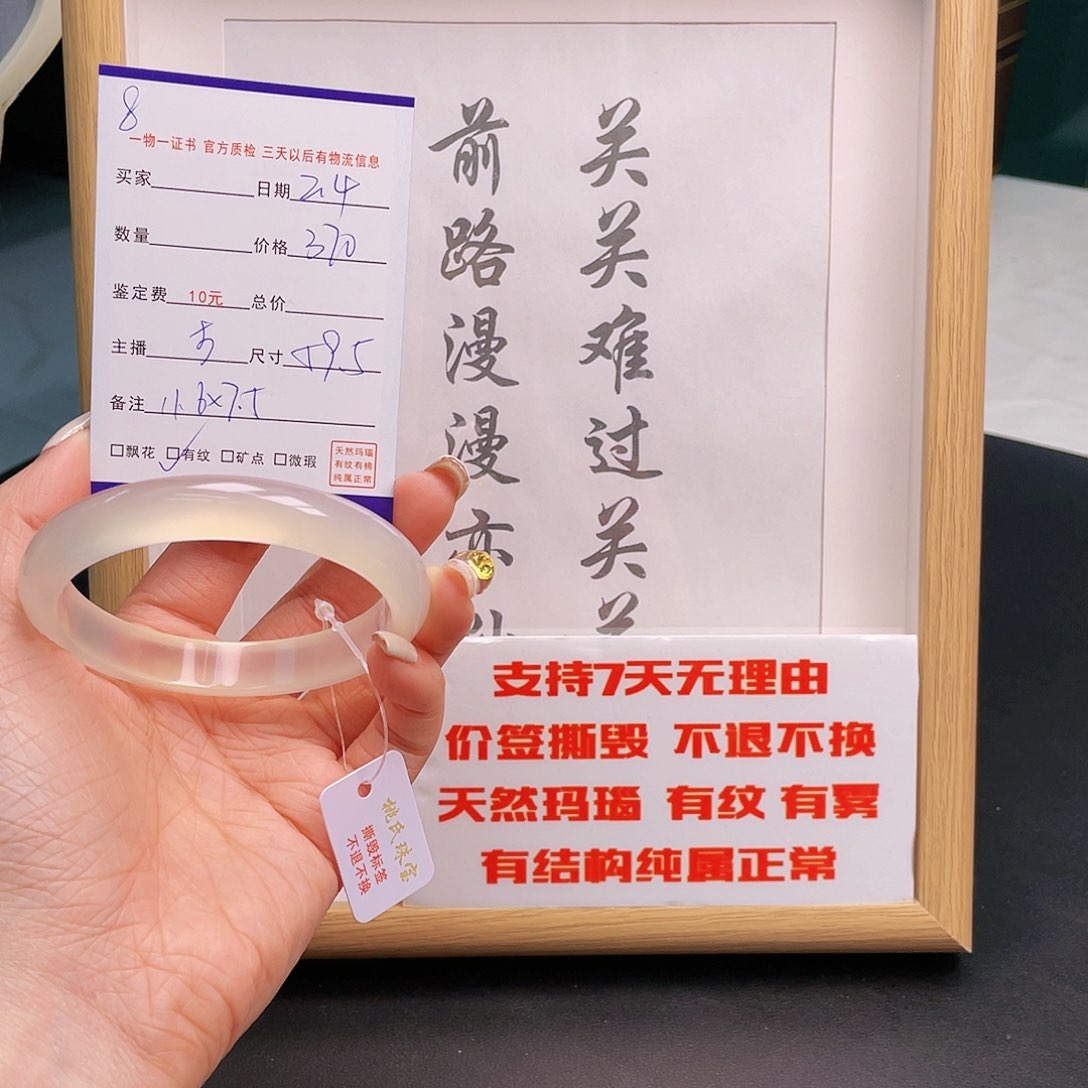 8
一物一证书 官方质检 三天以后有物流信息
买家 日期 2.4
数量 价格 370
鉴定费 10元 总价
主播 尺寸 59.5
备注 11.6×7.5
☐飘花 ☑有纹 ☐矿点 ☐微瑕
天然玛瑙
有纹有棉
纯属正常
关关难过关关
前路漫漫亦
支持7天无理由
价签撕毁 不退不换
天然玛瑙 有纹 有雾
有结构纯属正常
姚氏珠宝
撕毁标签
不退不换